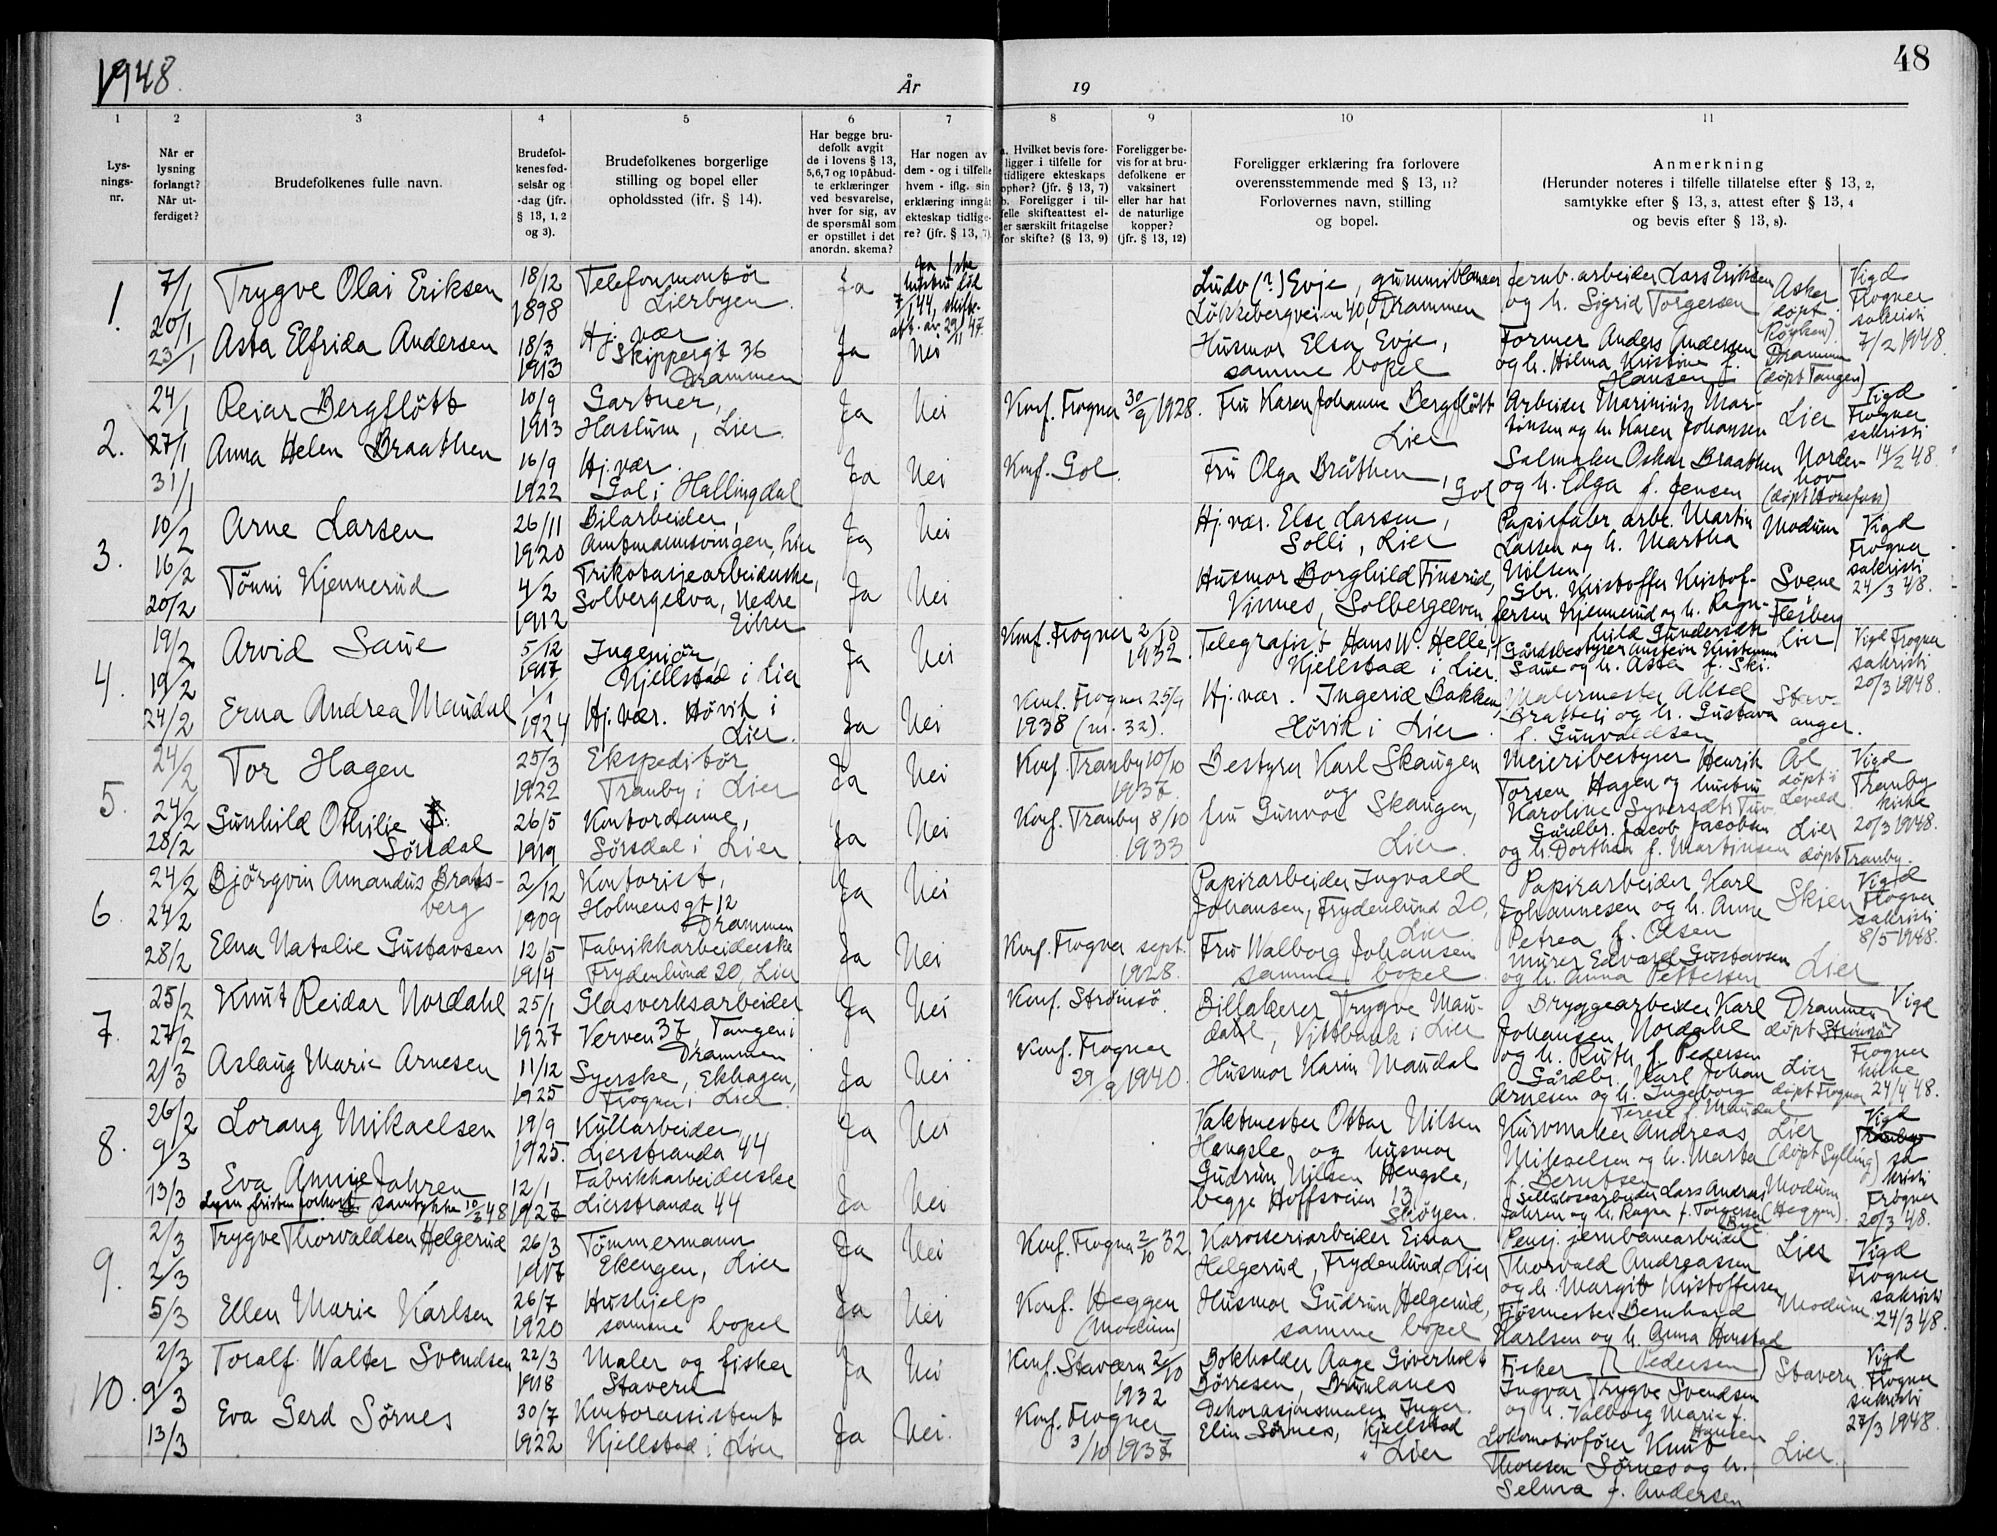 1948.
År
19
48
1
2
3
4
5
6
7
8
9
10
11
Lys-
nings-
nr.
Når er
lysning
forlangt?
Når ut-
ferdiget?
Brudefolkenes fulle navn.
Brudefol-
kenes fød-
selsår og
-dag (jfr.
§ 13, 1, 2
og 3).
Brudefolkenes borgerlige
stilling og bopel eller
opholdssted (jfr. § 14).
Har begge bru-
defolk avgit
de i lovens § 13,
5,6,7 og 10 påbud-
te erklæringer
ved besvarelse,
hver for sig, av
de spørsmål som
er opstillet i det
anordn. skema?
Har nogen av
dem - og i tilfelle
hvem - iflg. sin
erklæring inngåt
ekteskap tidlige-
re? (jfr. § 13, 7)
a. Hvilket bevis fore-
ligger i tilfelle for
tidligere ekteskaps
ophør? (jfr. § 13, 7)
b. Foreligger i til-
felle skifteattest el-
ler særskilt fritagelse
for skifte? (§ 13, 9)
Foreligger be-
vis for at bru-
defolkene er
vaksinert
eller har hat
de naturlige
kopper?
(jfr. § 13, 12)
Foreligger erklæring fra forlovere
overensstemmende med § 13, 11?
Forlovernes navn, stilling
og bopel.
Anmerkning
(Herunder noteres i tilfelle tillatelse efter § 13, 2,
samtykke efter § 13, 3, attest efter § 13, 4
og bevis efter § 13, 8).
1.
7/1
20/1
23/1
Trygve Olai Eriksen
Asta Elfrida Andersen
18/12
1898
18/3
1913
Telefonmontør
Lierbyen.
Hj. vær
Skippergt 36
Drammen
Ja
Ja
Nei
Ludv (?) Evje, gummi
40, Drammen
Husmor Elsa Evje,
samme bopel
Jernb. arbeider Lars Eriksen
og h. Sigrid Torgersen
Former Anders Andersen
og h. Hilma Kristine f.
Hansen
Asker
(døpt
Røyken)
Drammen
(døpt Tangen)
Vigd
Frogner
sakristi
7/2 1948.
2.
24/1
27/1
31/1
Reiar Bergflött
Anna Helen Braathen
10/9
1913
16/9
1922
Gartner,
Haslum, Lier.
Hj. vær.
Gol i Hallingdal
Ja
Ja
Nei
Nei
Konf. Frogner 30/9 1928.
Konf. Gol.
Fru Karen Johanne Bergflött
Lier
Fru Olga Bråthen,
Gol
Arbeider Marinius Mar-
tinsen og h. Karen Johansen
Salmaker Oskar Braathen
og h. Olga f. Jensen
Lier
Norder-
hov
(døpt Hønefoss)
Vigd
Frogner
sakristi
14/2 48.
3.
10/2
16/2
20/2
Arne Larsen
Tönni Kjennerud
26/11
1920
4/2
1912
Bilarbeider,
Amtmannsvingen, Lier
Trikotasjearbeiderske,
Solbergelva, Nedre
Eiker
Ja
Ja
Nei
Nei
Hj. vær. Else Larsen,
Solli, Lier
Husmor Borghild Finsrud,
Vinnes, Solbergelven
Papirfabr. arb. Martin
Larsen og h. Martha
Nilsen
Gbr. Kristoffer Kristof-
fersen Kjennerud og h. Ragn-
hild Gundersdtr
Modum
Svene
i
Flesberg
Vigd
Frogner
sakristi
24/3 48.
4.
19/2
19/2
24/2
Arvid Saue
Erna Andrea Maudal
5/12
1917
1/1
1924
Ingeniør,
Kjellstad i Lier
Hj. vær. Høvik i
Lier.
Ja
Ja
Nei
Nei
Konf. Frogner 2/10
1932.
Konf. Frogner 25/9
1938 (nr. 32).
Telegrafist Hans W. Helle,
Kjellstad i Lier.
Hj. vær. Ingerid Bakken,
Høvik i Lier.
Gårdsbestyrer Austein Kristensen
Saue og h. Asta f. Ski.
Malermester Aksel
Bratteli og h. Gustava
f. Gunvaldsen
Lier
Stav-
anger.
Vigd Frogner
sakristi
20/3 1948.
5.
24/2
24/2
28/2
Tor Hagen
Gunhild Othilie
Sørsdal
25/3
1922
26/5
1919
Ekspeditør
Tranby i Lier
Kontordame,
Sørsdal i Lier
Ja
Ja
Nei
Nei
Konf. Tranby 10/10
1937.
Konf. Tranby 8/10
1933
Bestyrer Karl Skaugen
og
fru Gunvor Skaugen,
Lier.
Meieribestyrer Henrik
Torsen Hagen og hustru
Karoline Syversdtr Tuv
Gårdbr. Jacob Jacobsen
og h. Dorthea f. Martinsen
Ål
døpt i
Leveld
Lier
døpt Tranby.
Vigd
Tranby
kirke
20/3 1948.
6.
24/2
24/2
28/2
Bjørgvin Amandus Brats-
berg
Elna Natalie Gustavsen
2/12
1909
12/5
1914
Kontorist,
Holmensgt 12
Drammen
Fabrikkarbeiderske
Frydenlund 20, Lier
Ja
Ja
Nei
Nei
Konf. Frogner sept.
1928.
Papirarbeider Ingvald
Johansen, Frydenlund 20,
Lier
Fru Walborg Johansen
samme bopel
Papirarbeider Karl
Johannesen og h. Anne
Petrea f. Olsen
Murer Edvard Gustavsen
og h. Anna Pettersen
Skien
Lier
Vigd
Frogner
sakristi
8/5 1948.
7.
25/2
27/2
2/3
Knut Reidar Nordahl
Aslaug Marie Arnesen
25/1
1927
11/12
1925
Glasverksarbeider
Verven 37, Tangen i
Drammen
Syerske, Ekhagen,
Frogner i Lier.
Ja
Ja
Nei
Nei
Konf. Strømsø
Konf. Frogner
29/9 1940.
Billakerer Trygve Mau-
dahl, Vittbank i Lier
Husmor Karin Maudal
Bryggearbeider Karl
Johansen Nordahl
og h. Ruth f. Pedersen
Gårdbr. Karl Johan
Arnesen og h. Ingeborg
Terese f. Maudal
Drammen
døpt Strømsø
Lier
døpt Frogner
Vigd
Frogner
kirke
24/4 48.
8.
26/2
9/3
13/3
Lorang Mikaelsen
Eva Annie Jahren
samtykke 10/3 48
19/9
1925.
12/1
1927
Kullarbeider
Lierstranda 44
Fabrikkarbeiderske
Lierstranda 44
Ja
Ja
Nei
Nei
Vaktmester Ottar Nilsen
Hengsle og husmor
Gudrun Nilsen Hengsle,
begge Hoffsveien 13
Skøyen.
Kurvmaker Andreas
Mikaelsen og h. Marta
f. Berntsen
Cellulosearbeider Lars Andreas
Jahren og h. Ragna f. Torgersen
Bye
Lier
(døpt Sylling)
Modum
(Heggen)
Vigd
Tranby
sa
kristi
Frogner
20/3 48.
9.
2/3
2/3
5/3
Trygve Thorvaldsen Helgerud
Ellen Marie Karlsen
26/3
1917
26/7
1920
Tømmermann
Ekengen, Lier
Hushjelp
samme bopel
Ja
Ja
Nei
Nei
Konf. Frogner 2/10 32.
Konf. Heggen
(Modum)
Karosseriarbeider Einar
Helgerud, Frydenlund, Lier
Husmor Gudrun Helgerud,
samme bopel
Pensj. jernbanearbeider
Thorvald Andreassen
og h. Margit Kristoffersen
Fjøsmester Bernhard
Karlsen og h. Anna Honstad
Lier
Modum
Vigd
Frogner
sakristi
24/3 48.
10.
2/3
9/3
13/3
Toralf Walter Svendsen
Eva Gerd Sørnes
22/3
1918
30/7
1922
Maler og fisker
Stavern
Kontorassistent
Kjellstad i Lier
Ja
Ja
Nei
Nei.
Konf. Stavern 2/10
1932
Konf. Frogner
3/10 1937
Bokholder Aage Giverholt
Børresen, Brunlanes
Dekorasjonsmaler Inger
Elin Sørnes, Kjellstad
Lier
Fisker (Pedersen)
Ingvar Trygve Svendsen
og h. Valborg Marie f.
Hansen
Lokomotivfører Knut
Thoresen Sørnes og h.
Selma f. Andersen
Stavern.
Lier.
Vigd
Frogner
sakristi
27/3 1948.